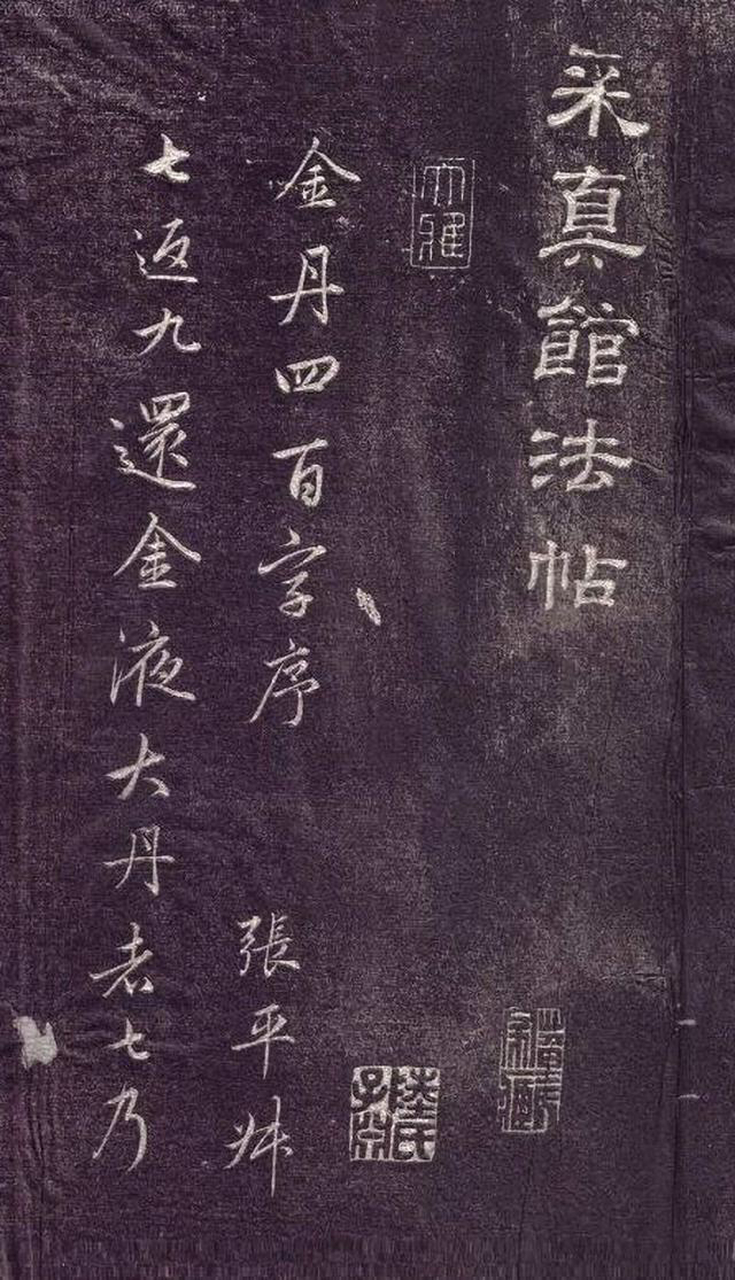 采真館法帖
大雅
陸氏
金丹四百字序 張平叔
七返九還金液大丹者七乃